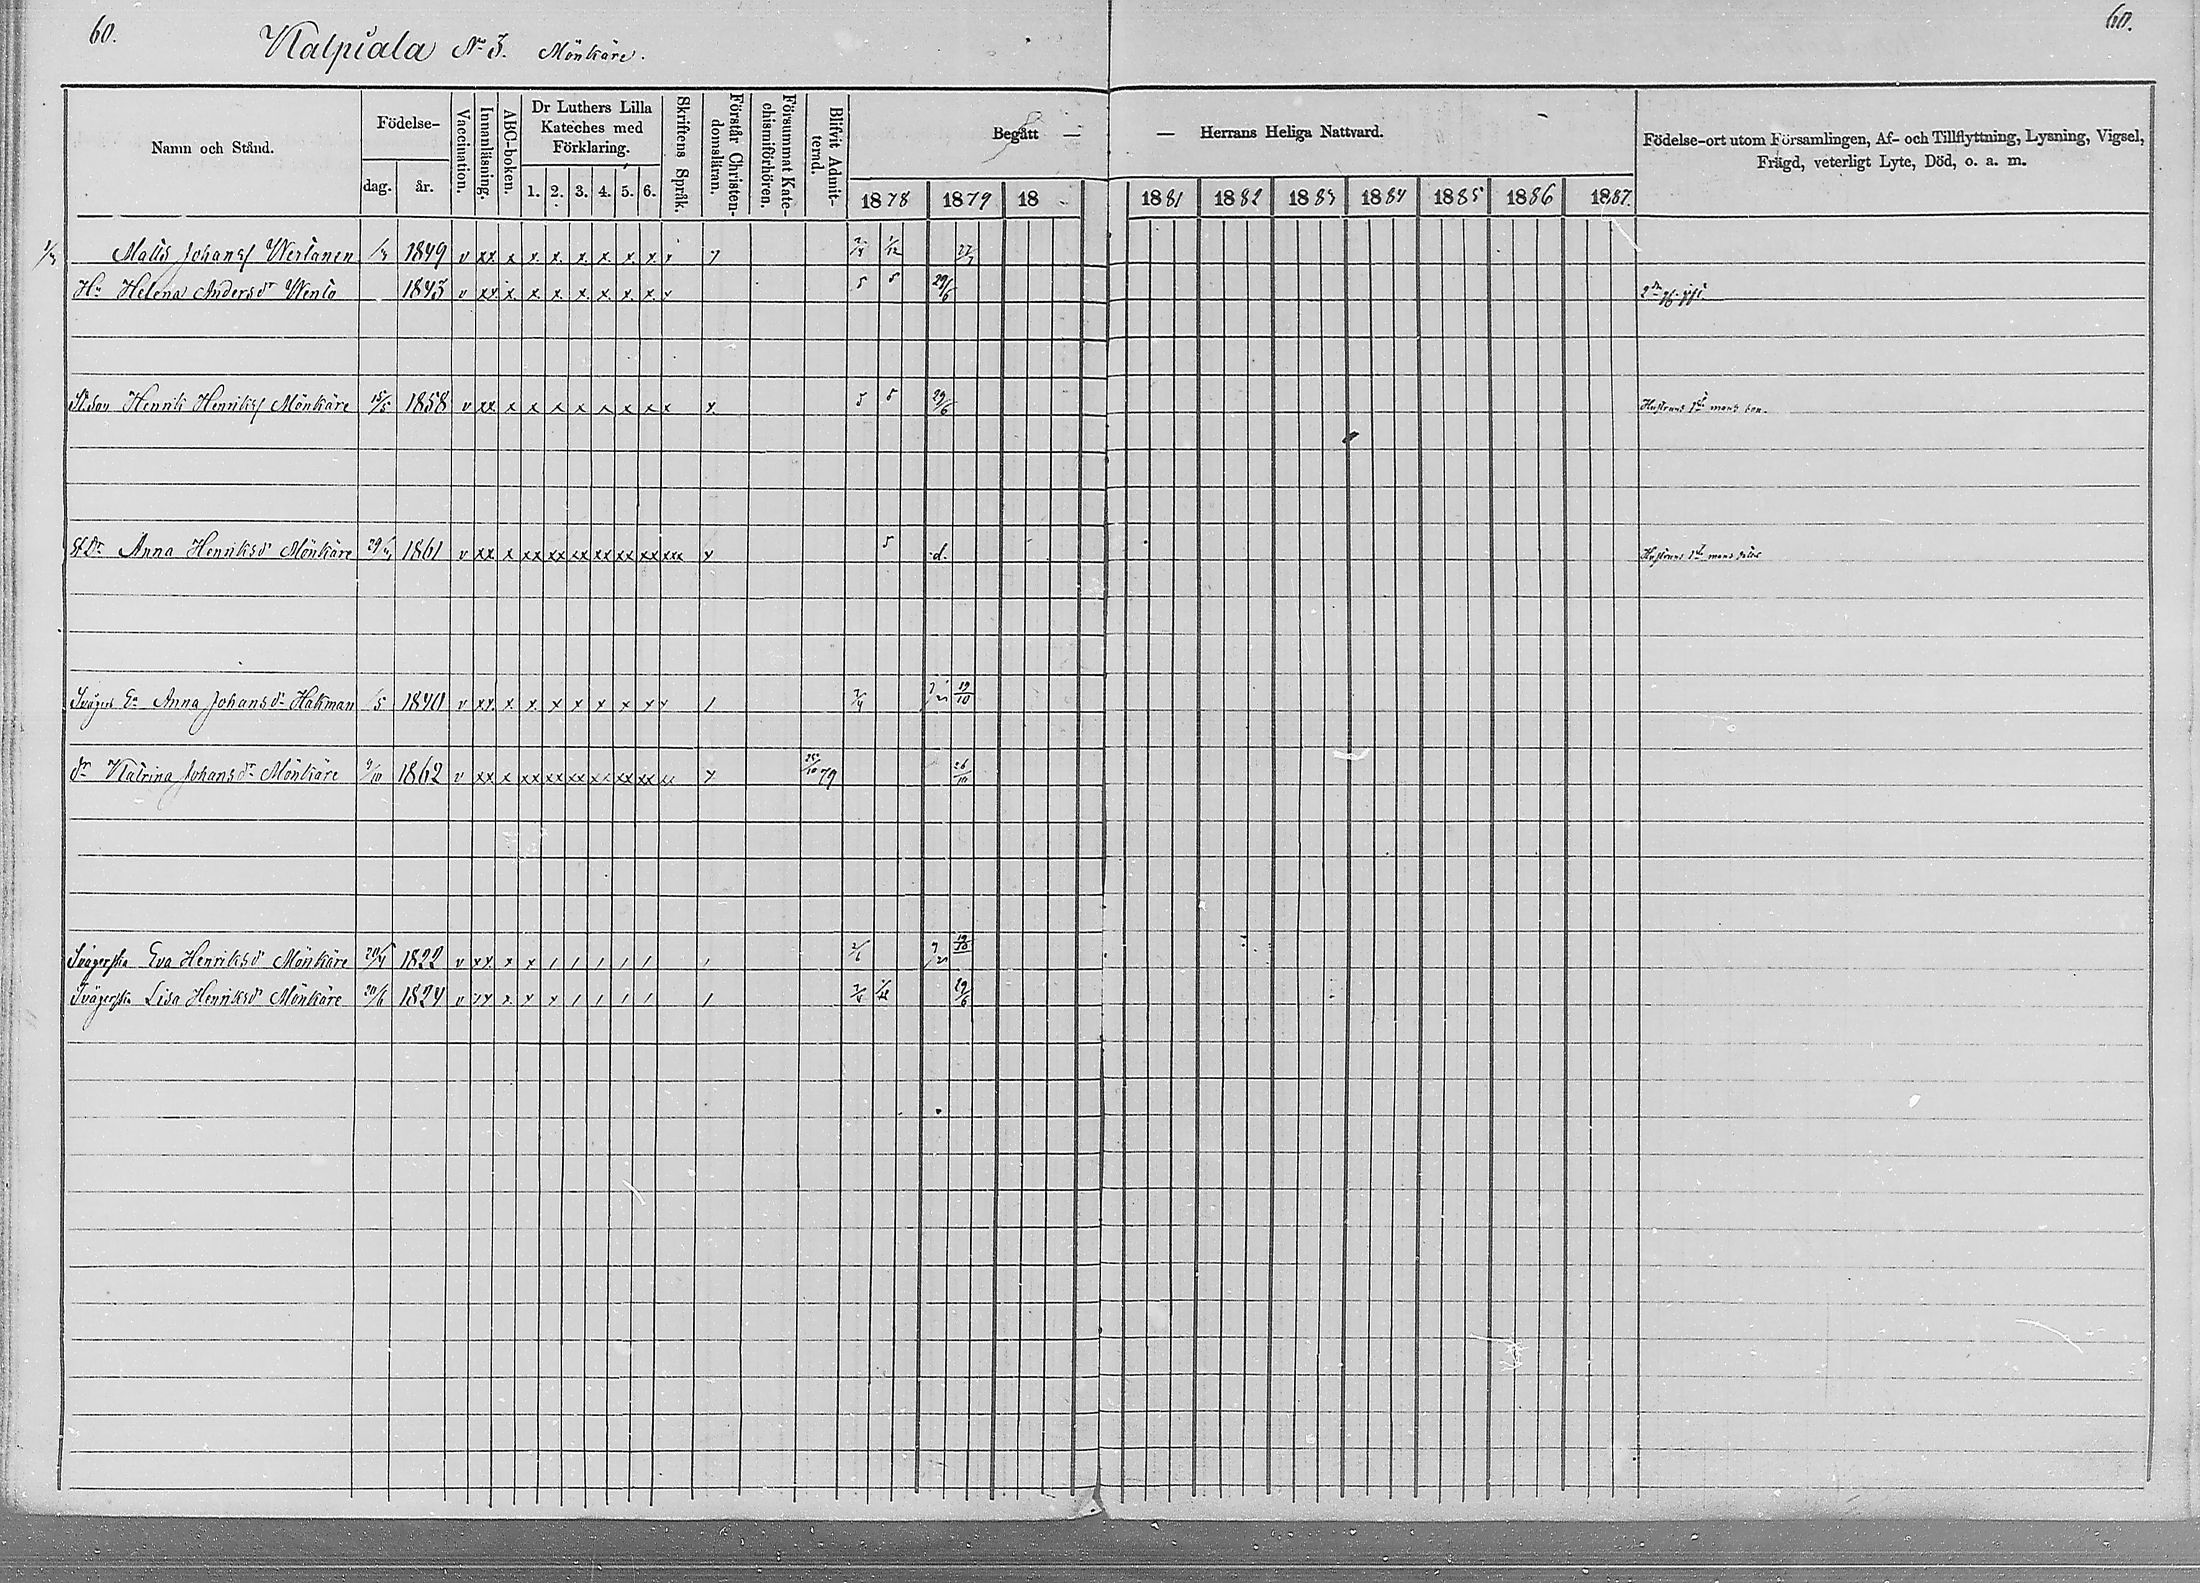 60.
Kalpiala No 3. Mönkäre.
60.
Namn och Stånd.
Födelse-
dag. år.
Vaccination.
Innanläsning.
ABC-boken.
Dr Luthers Lilla
Kateches med
Förklaring.
1. 2. 3. 4. 5. 6.
Skriftens Språk.
Förstår Christen-
domsläran.
Försummat Kate-
chismiförhören.
Blifvit Admit-
terad.
Begått — — Herrans Heliga Nattvard.
1878 1879 18 1881 1882 1883 1884 1885 1886 1887.
Födelse-ort utom Församlingen, Af- och Tillflyttning, Lysning, Vigsel,
Frägd, veterligt Lyte, Död, o. a. m.
Matts Johansf Wertanen 1849 v xx x x. x. x. x. x. x. x
Hu Helena Andersdr Wento 1843 v xx x. x x. x x. x. x x 5 5 29/6
St.Son Henrik Henriksf Mönkäre 15/5 1858 v xx x x x x x x x x x 5 5 29/6 Hustruns 1sta mans son.
St.Dr Anna Henriksdr Mönkäre 1861 v xx x xx xx xx xx xx xx xxx x 5 d. Hustruns 1sta mans
Svågers Ea Anna Johansdr Hakman /5 1840 v xx x x x x x x x x 19/10
dr Katrina Johansdr Mönkäre 9/10 1862 v xx x xx xx xx xx xx xx 26/10 79 26/10
Svägerska Eva Henriksdr Mönkäre 20/4 1822 v xx x x 19/10
Svägerska Lisa Henriksdr Mönkäre 20/6 1824 v x x x 29/6